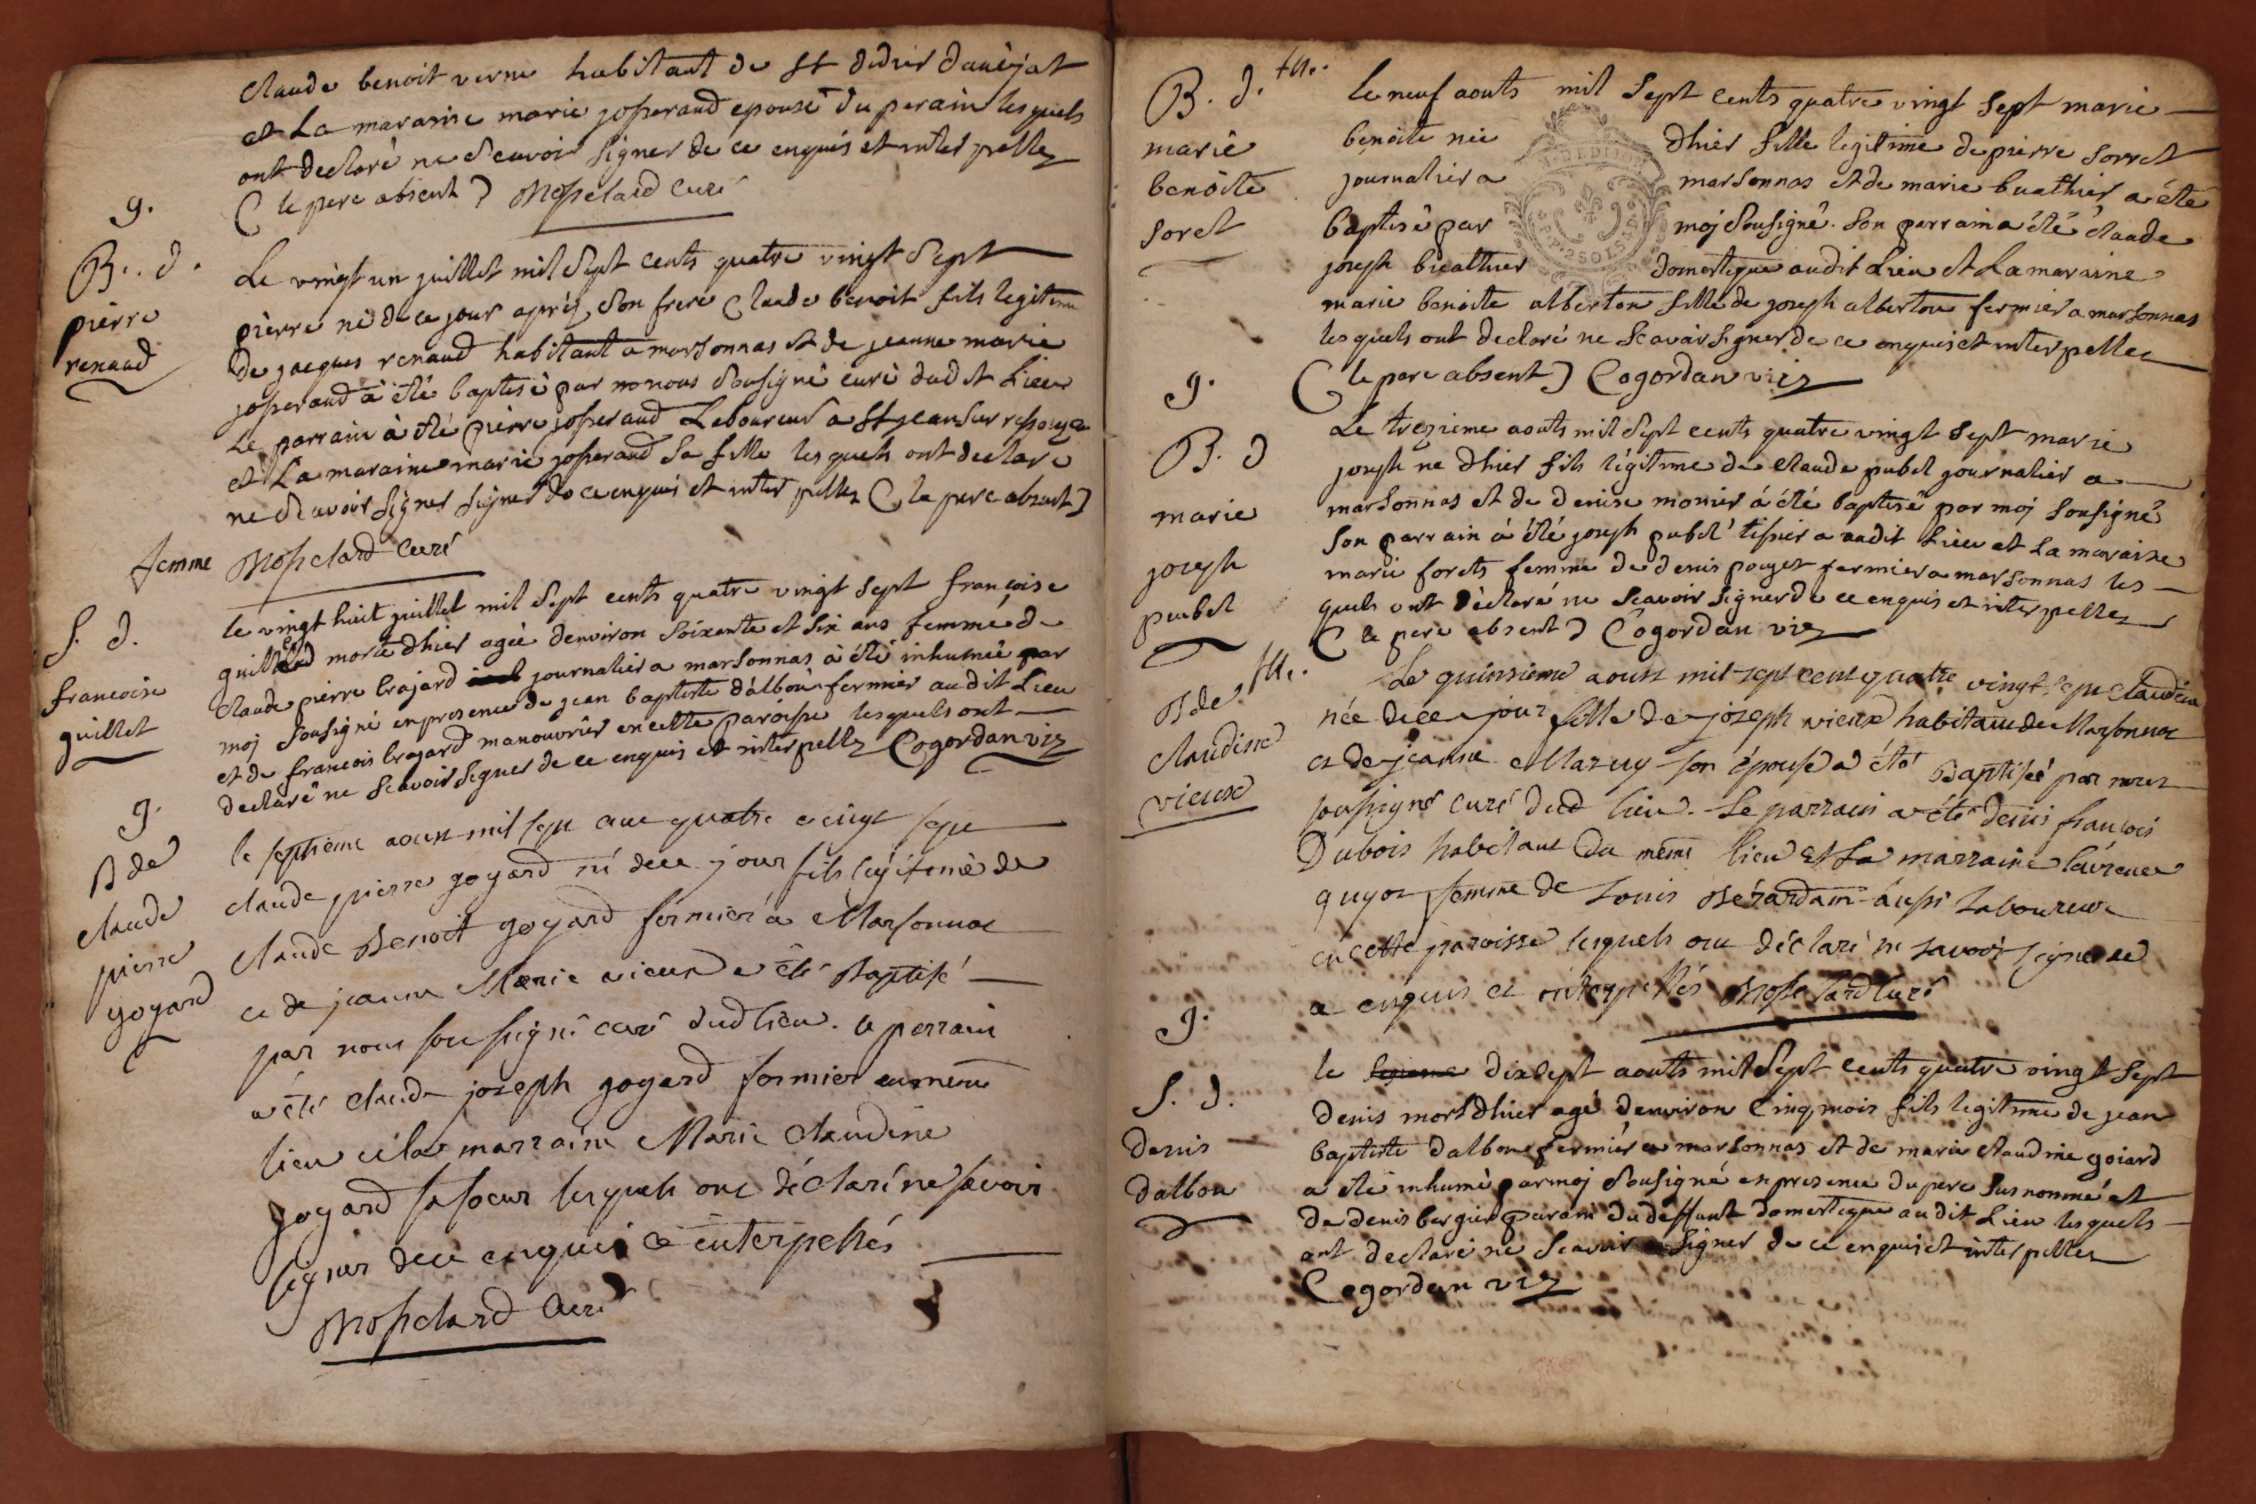 claude benoit verne habitant de St didier daussjat
et La maraine marie josserand epouse du perain lesquels
ont declaré ne scavoir signer de ce enquis et interpellez
( le pere absent ) Mosselard curé
g.
B. d.
pierre
renaud
Le vingt un juillet mil sept cents quatre vingt sept
pierre né de ce jour après son frere Claude benoit fils legitime
de jacques renaud habitant a marsonnas et de jeanne marie
josserand a été baptisé par nonous sousigné curé dudit Lieu
Le parrain à été pierre josserand Laboureur a St jean sur ressouze
et La maraine marie josserand sa fille lesquels ont declaré
ne scavoir signer signer de ce enquis et interpellez ( le pere absent )
Mosselard curé
femme
S. d.
francoise
guillet
le vingt huit juillet mil sept cents quatre vingt sept françoise
guilled morte dhier agée denviron soixante et six ans femme de
claude pierre brajard journalier a marsonnas à été inhumée par
moj sousigné en presence de jean baptiste dalbon fermier audit Lieu
et de francois brajard manouvrier en cette paroisse lesquels ont
declaré ne scavoir signer de ce enquis et interpellez Cogordan viz
g.
B de
claude
pierre
goyard
le septieme aoust mil sept cent quatre vingt sept
claude pierre goyard né de ce jour fils légitime de
claude Benoit goyard fermier a Marsonnas
et de jeanne Marie vieux a été Baptisé
par nous soussigné curé dud lieu. le parrain
a été claude joseph goyard fermier au meme
lieu et la marraine Marie claudine
goyard sa soeur lesquels ont déclaré ne savoir
signer de ce enquis et interpellés
Mosselard curé
B. d. flle.
marie
benoite
soret
le neuf aouts mil sept cents quatre vingt sept marie
benoite née dhier fille legitime de pierre sorret
journalier a marsonnas et de marie buathier a été
baptisé par moj sousigné. son parrain a été claude
joseph buathier domestique audit Lieu et La maraine
marie benoite alberton fille de joseph alberton fermier a marsonnas
lesquels ont declaré ne scavoir signer de ce enquis et interpellez
( le pere absent ) Cogordan viz
g.
B. d
marie
joseph
pubel
Le trezieme aouts mil sept cents quatre vingt sept marie
joseph ne dhier fils légitime de Claude pubel journalier a
marsonnas et de denise monier á été baptisé par moj sousigné
son parrain à été joseph pubel tissier a audit Lieu et La maraine
marie forets femme de denis pouget fermier a marsonnas les
quels ont déclaré ne scavoir signer de ce enquis et interpellez
( le pere absent ) Cogordan viz
B de flle.
claudine
vieux
Le quinsieme aoust mil sept cent quatre vingt sept claudine
née de ce jour fille de joseph vieux habitant de Marsonnas
et de jeanne Mazuy son épouse a été Baptisée par nous
soussigné curé dud lieu. Le parrain a été denis françois
Dubois habitant du même lieu et La marraine laurence
guyot femme de Louis Bérardam aussi Laboureur
en cette paroisse lesquels ont déclaré ne savoir signer de ce
a enquis et interpellés Mosselard curé
g.
S. d.
denis
dalbon
le dix sept aouts mil sept cents quatre vingt sept
denis mort dhier agé denviron cinq mois fils legitime de jean
baptiste dalbon fermier a marsonnas et de marie claudine goiard
a été inhumé par moj sousigné en presence du pere susnommé et
de denis bergier parain du deffunt domestique audit Lieu lesquels
ont declaré ne scavoir signer de ce enquis et interpellez
Cogordan viz